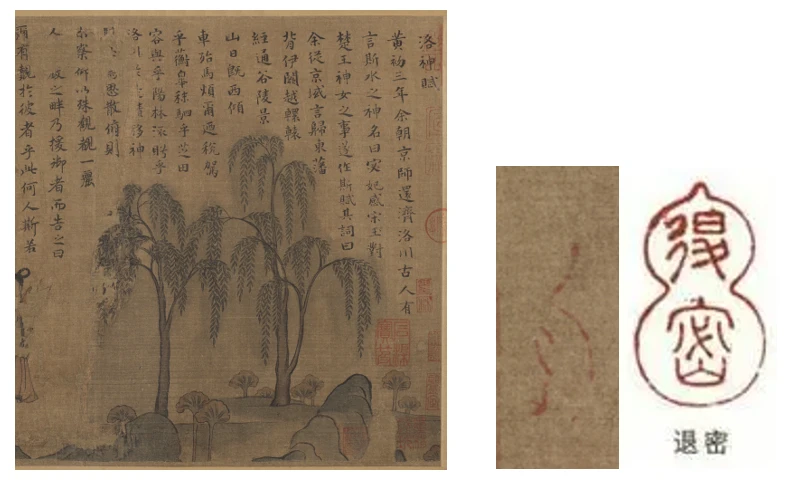 洛神賦
黃初三年余朝京師還濟洛川古人有
言斯水之神名曰宓妃感宋玉對
楚王神女之事遂作斯賦其詞曰
余從京域言歸東藩
背伊闕越轘轅
經通谷陵景
山日既西傾
車殆馬煩爾迺稅駕
乎蘅皋秣駟乎芝田
容與乎陽林流眄乎
洛川於是精移神
思散俯則
未察仰以殊觀覩一麗
人 之畔乃援御者而告之曰
爾有覿於彼者乎此何人斯若
退密
退密